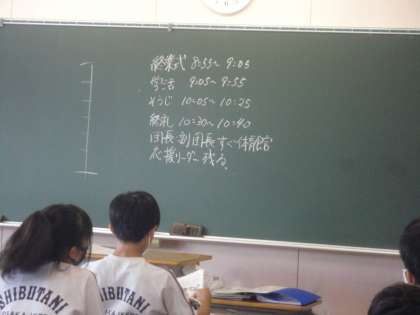 終業式 8:55~ 9:05
学活 9:05~ 9:55
そうじ 10:05~ 10:25
終礼 10:30~ 10:40
団長副団長すぐ体育館
応援リーダー残る。
SHIBUTANI
SHIBUTANI